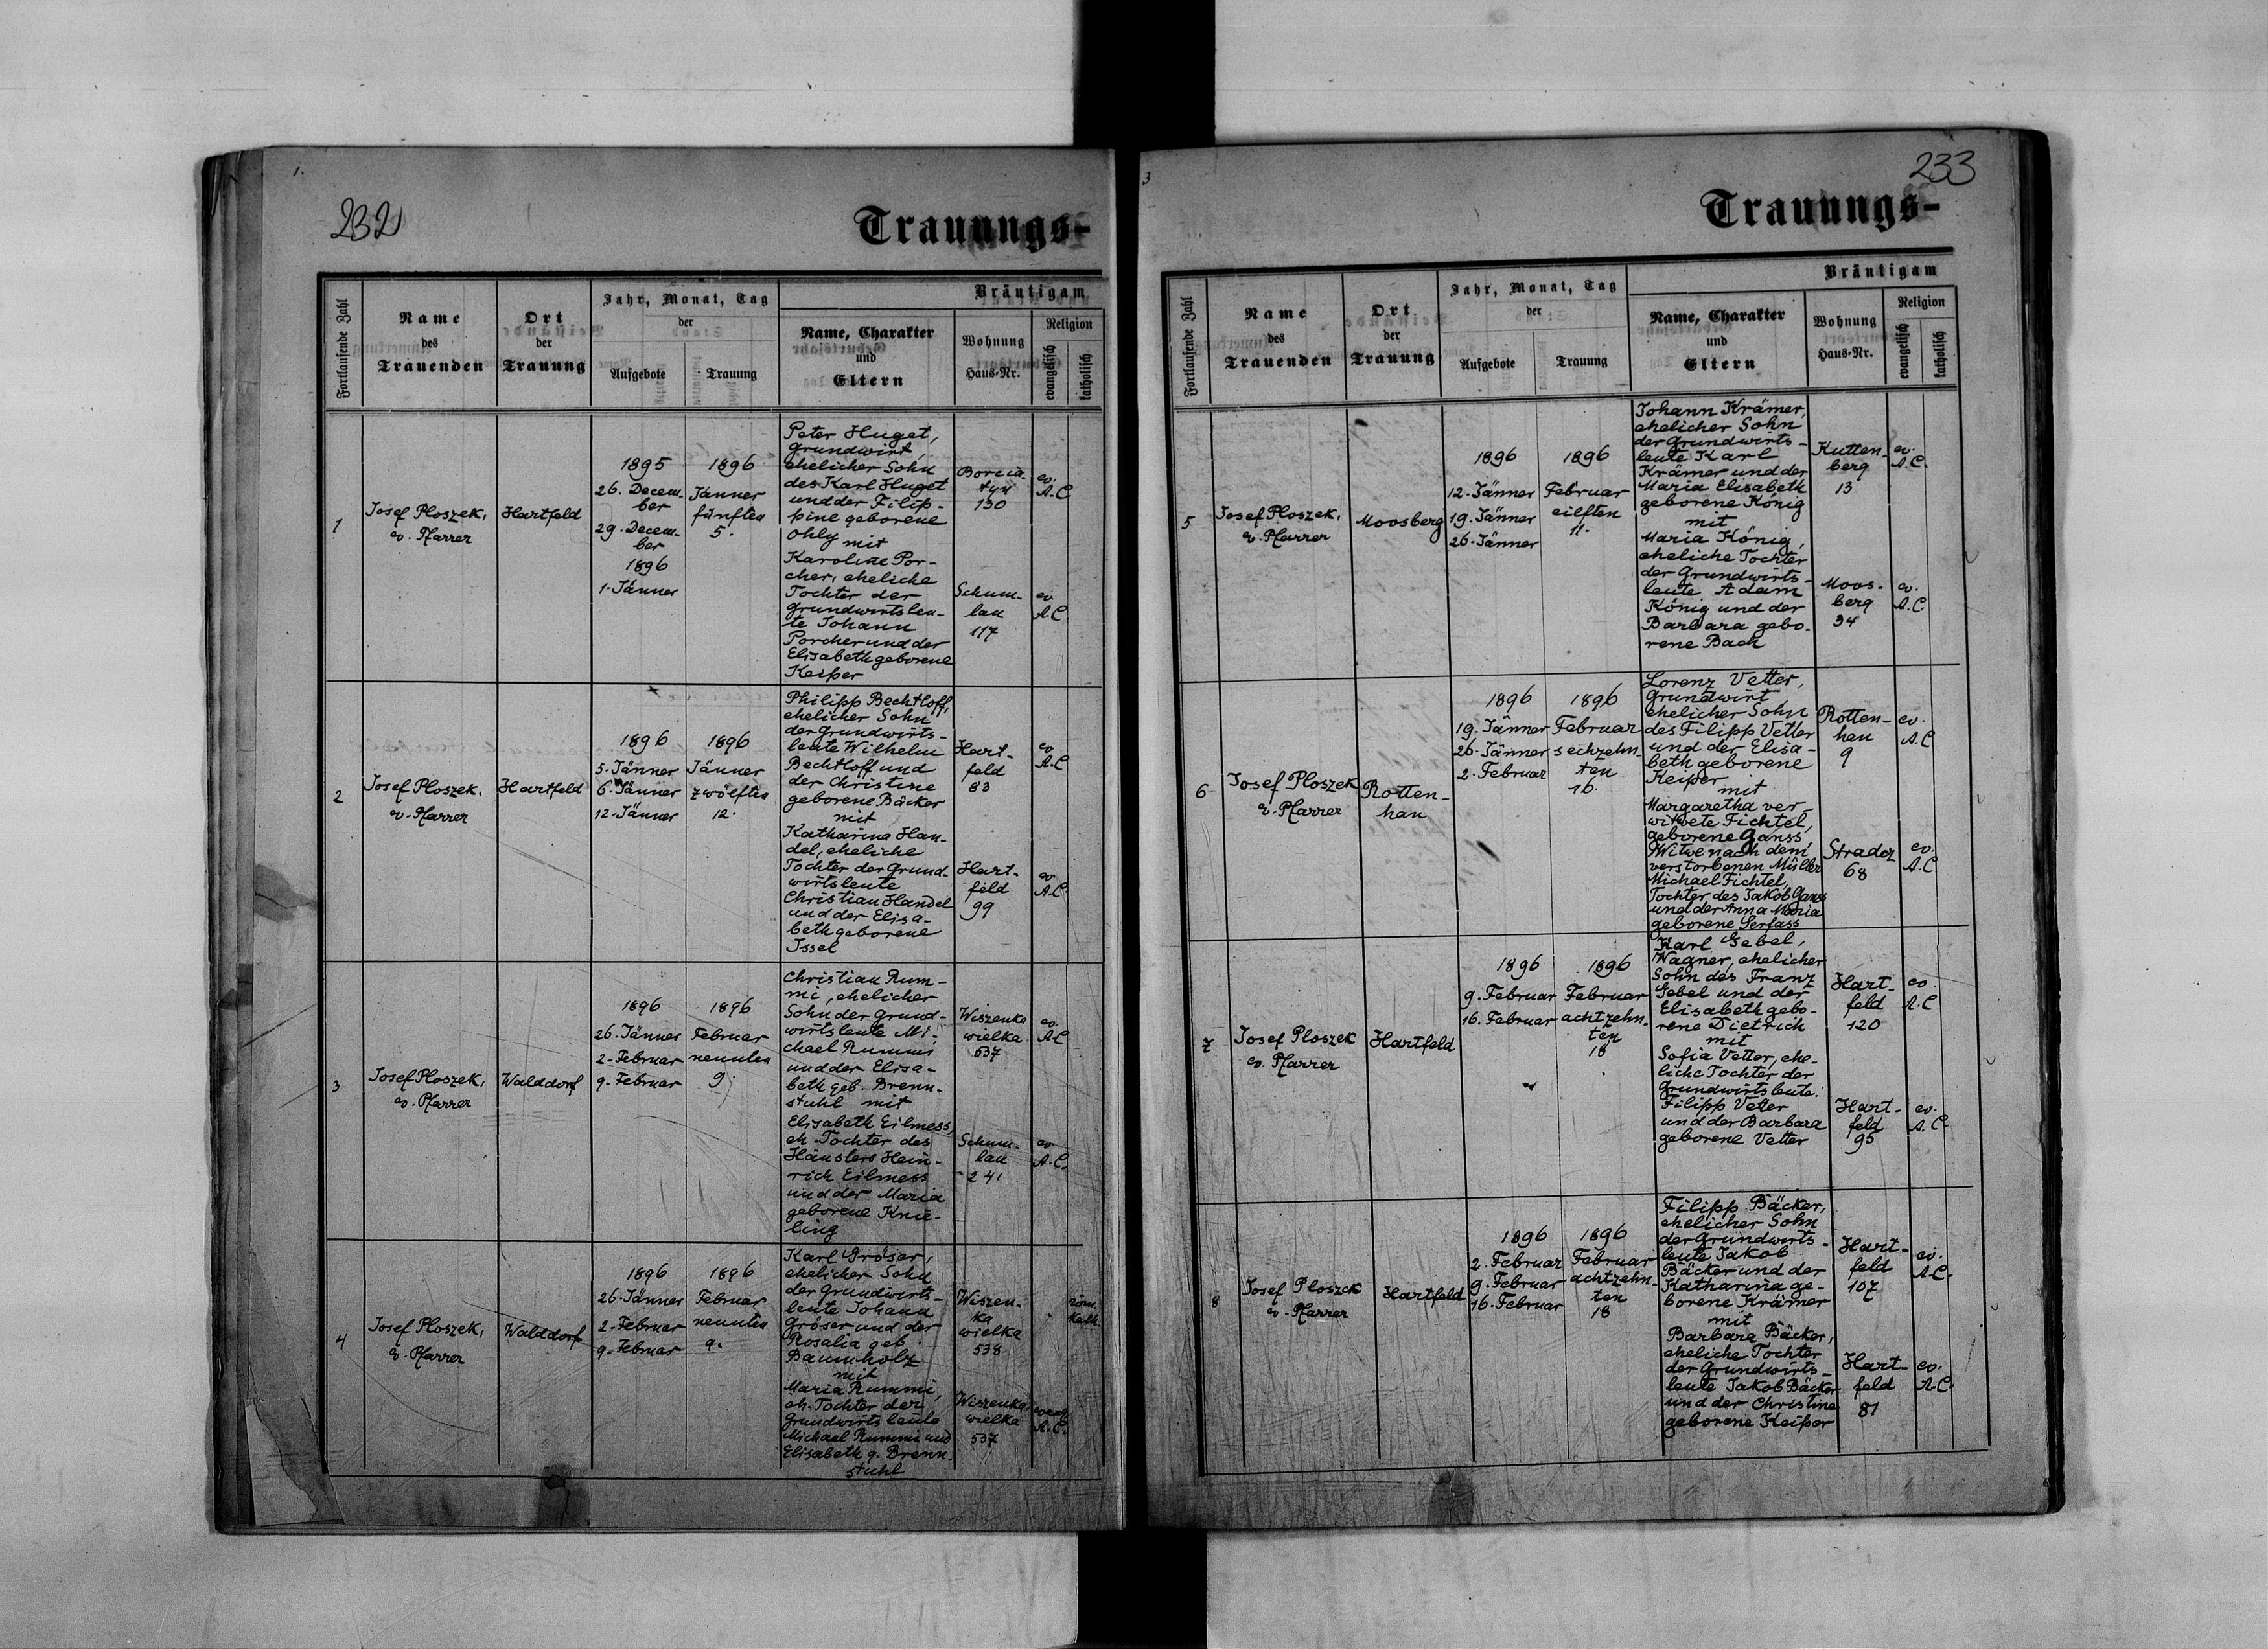 1.
232
Trauungs-
Fortlaufende Zahl
Name
des
Trauenden
Ort
der
Trauung
Jahr, Monat, Tag
der
Aufgebote
Trauung
Bräutigam
Name, Charakter
und
Eltern
Wohnung
Haus-Nr.
Religion
evangelisch
katholisch
1
Josef Ploszek,
ev. Pfarrer
Hartfeld
1895
26. Decem-
ber
29. Decem-
ber
1896
1. Jänner
1896
Jänner
fünften
5.
Peter Huget,
Grundwirt,
ehelicher Sohn
des Karl Huget
und der Filip-
pine geborene
Ohly mit
Karoline Por-
cher, eheliche
Tochter der
Grundwirtsleu-
te Johann
Porcher und der
Elisabeth geborene
Keiper
130
ev.
A.C
Schum-
lau
117
ev.
A.C.
2
Josef Ploszek,
ev. Pfarrer
Hartfeld
1896
5. Jänner
6. Jänner
12. Jänner
1896
Jänner
zwölften
12.
Philipp Bechtloff,
ehelicher Sohn
der Grundwirts-
leute Wilhelm
Bechtloff und
der Christine
geborene Bäcker
mit
Katharina Han-
del, eheliche
Tochter der Grund-
wirtsleute
Christian Handel
und der Elisa-
beth geborene
Issel
Hart-
feld
83
ev
A.C
Hart-
feld
99
ev
A.C.
3
Josef Ploszek,
ev. Pfarrer
Walddorf
1896
26. Jänner
2. Februar
9. Februar
1896
Februar
neunten
9.
Christian Rum-
mi, ehelicher
Sohn der Grund-
wirtsleute Mi-
chael Rummi
und der Elisa-
beth geb. Brenn-
stuhl mit
Elisabeth Eilmess,
eh. Tochter des
Häuslers Hein-
rich Eilmess
und der Maria
geborene Knie-
ling
Wiszenka
wielka
537
ev.
A.C
Schum-
lau
241
ev
A.C.
4
Josef Ploszek,
ev. Pfarrer
Walddorf
1896
26. Jänner
2. Februar
9. Februar
1896
Februar
neunten
9.
Karl Gröser,
ehelicher Sohn
der Grundwirts-
leute Johann
Gröser und der
Rosalia geb.
Baumholz
mit
Maria Rummi,
eh. Tochter der
Grundwirtsleute
Michael Rummi und
Elisabeth g. Brenn-
stuhl
Wiszen-
ka
wielka
538
röm.
kath.
Wiszenka
wielka
537
evang
A.C.
3
233
Trauungs-
Fortlaufende Zahl
Name
des
Trauenden
Ort
der
Trauung
Jahr, Monat, Tag
der
Aufgebote
Trauung
Bräutigam
Name, Charakter
und
Eltern
Wohnung
Haus-Nr.
Religion
evangelisch
katholisch
5
Josef Ploszek,
ev. Pfarrer
Moosberg
1896
12. Jänner
19. Jänner
26. Jänner
1896
Februar
eilften
11.
Johann Krämer,
ehelicher Sohn
der Grundwirts-
leute Karl
Krämer und der
Maria Elisabeth
geborene König
mit
Maria König,
eheliche Tochter
der Grundwirts-
leute Adam
König und der
Barbara gebo-
rene Bach
Kutten-
berg
13
ev.
A.C.
Moos-
berg
34
ev.
A.C
6
Josef Ploszek
ev. Pfarrer
Rotten-
han
1896
19. Jänner
26. Jänner
2. Februar
1896
Februar
sechzehn-
ten
16.
Lorenz Vetter,
Grundwirt
ehelicher Sohn
des Filipp Vetter
und der Elisa-
beth geborene
Keiper
mit
Margaretha ver-
witwete Fichtel,
geborene Ganss
Witwe nach dem
verstorbenen Müller
Michael Fichtel,
Tochter des Jakob Ganss
und der Anna Maria
geborene Serfass
Rotten-
han
9
ev.
A.C
Stradcz
68
ev.
A.C
7
Josef Ploszek
ev. Pfarrer
Hartfeld
1896
9. Februar
16. Februar
1896
Februar
achtzehn-
ten
18
Karl Gebel,
Wagner, ehelicher
Sohn des Franz
Gebel und der
Elisabeth gebo-
rene Dietrich
mit
Sofia Vetter, ehe-
liche Tochter der
Grundwirtsleute
Filipp Vetter
und der Barbara
geborene Vetter
Hart-
feld
120
ev.
A.C
Hart-
feld
95
ev.
A.C.
8
Josef Ploszek
ev. Pfarrer
Hartfeld
1896
2. Februar
9. Februar
16. Februar
1896
Februar
achtzehn-
ten
18
Filipp Bäcker,
ehelicher Sohn
der Grundwirts-
leute Jakob
Bäcker und der
Katharina ge-
borene Krämer
mit
Barbara Bäcker,
eheliche Tochter
der Grundwirts-
leute Jakob Bäcker
und der Christine
geborene Keiper
Hart-
feld
107
ev.
A.C.
Hart-
feld
81
ev.
A.C.